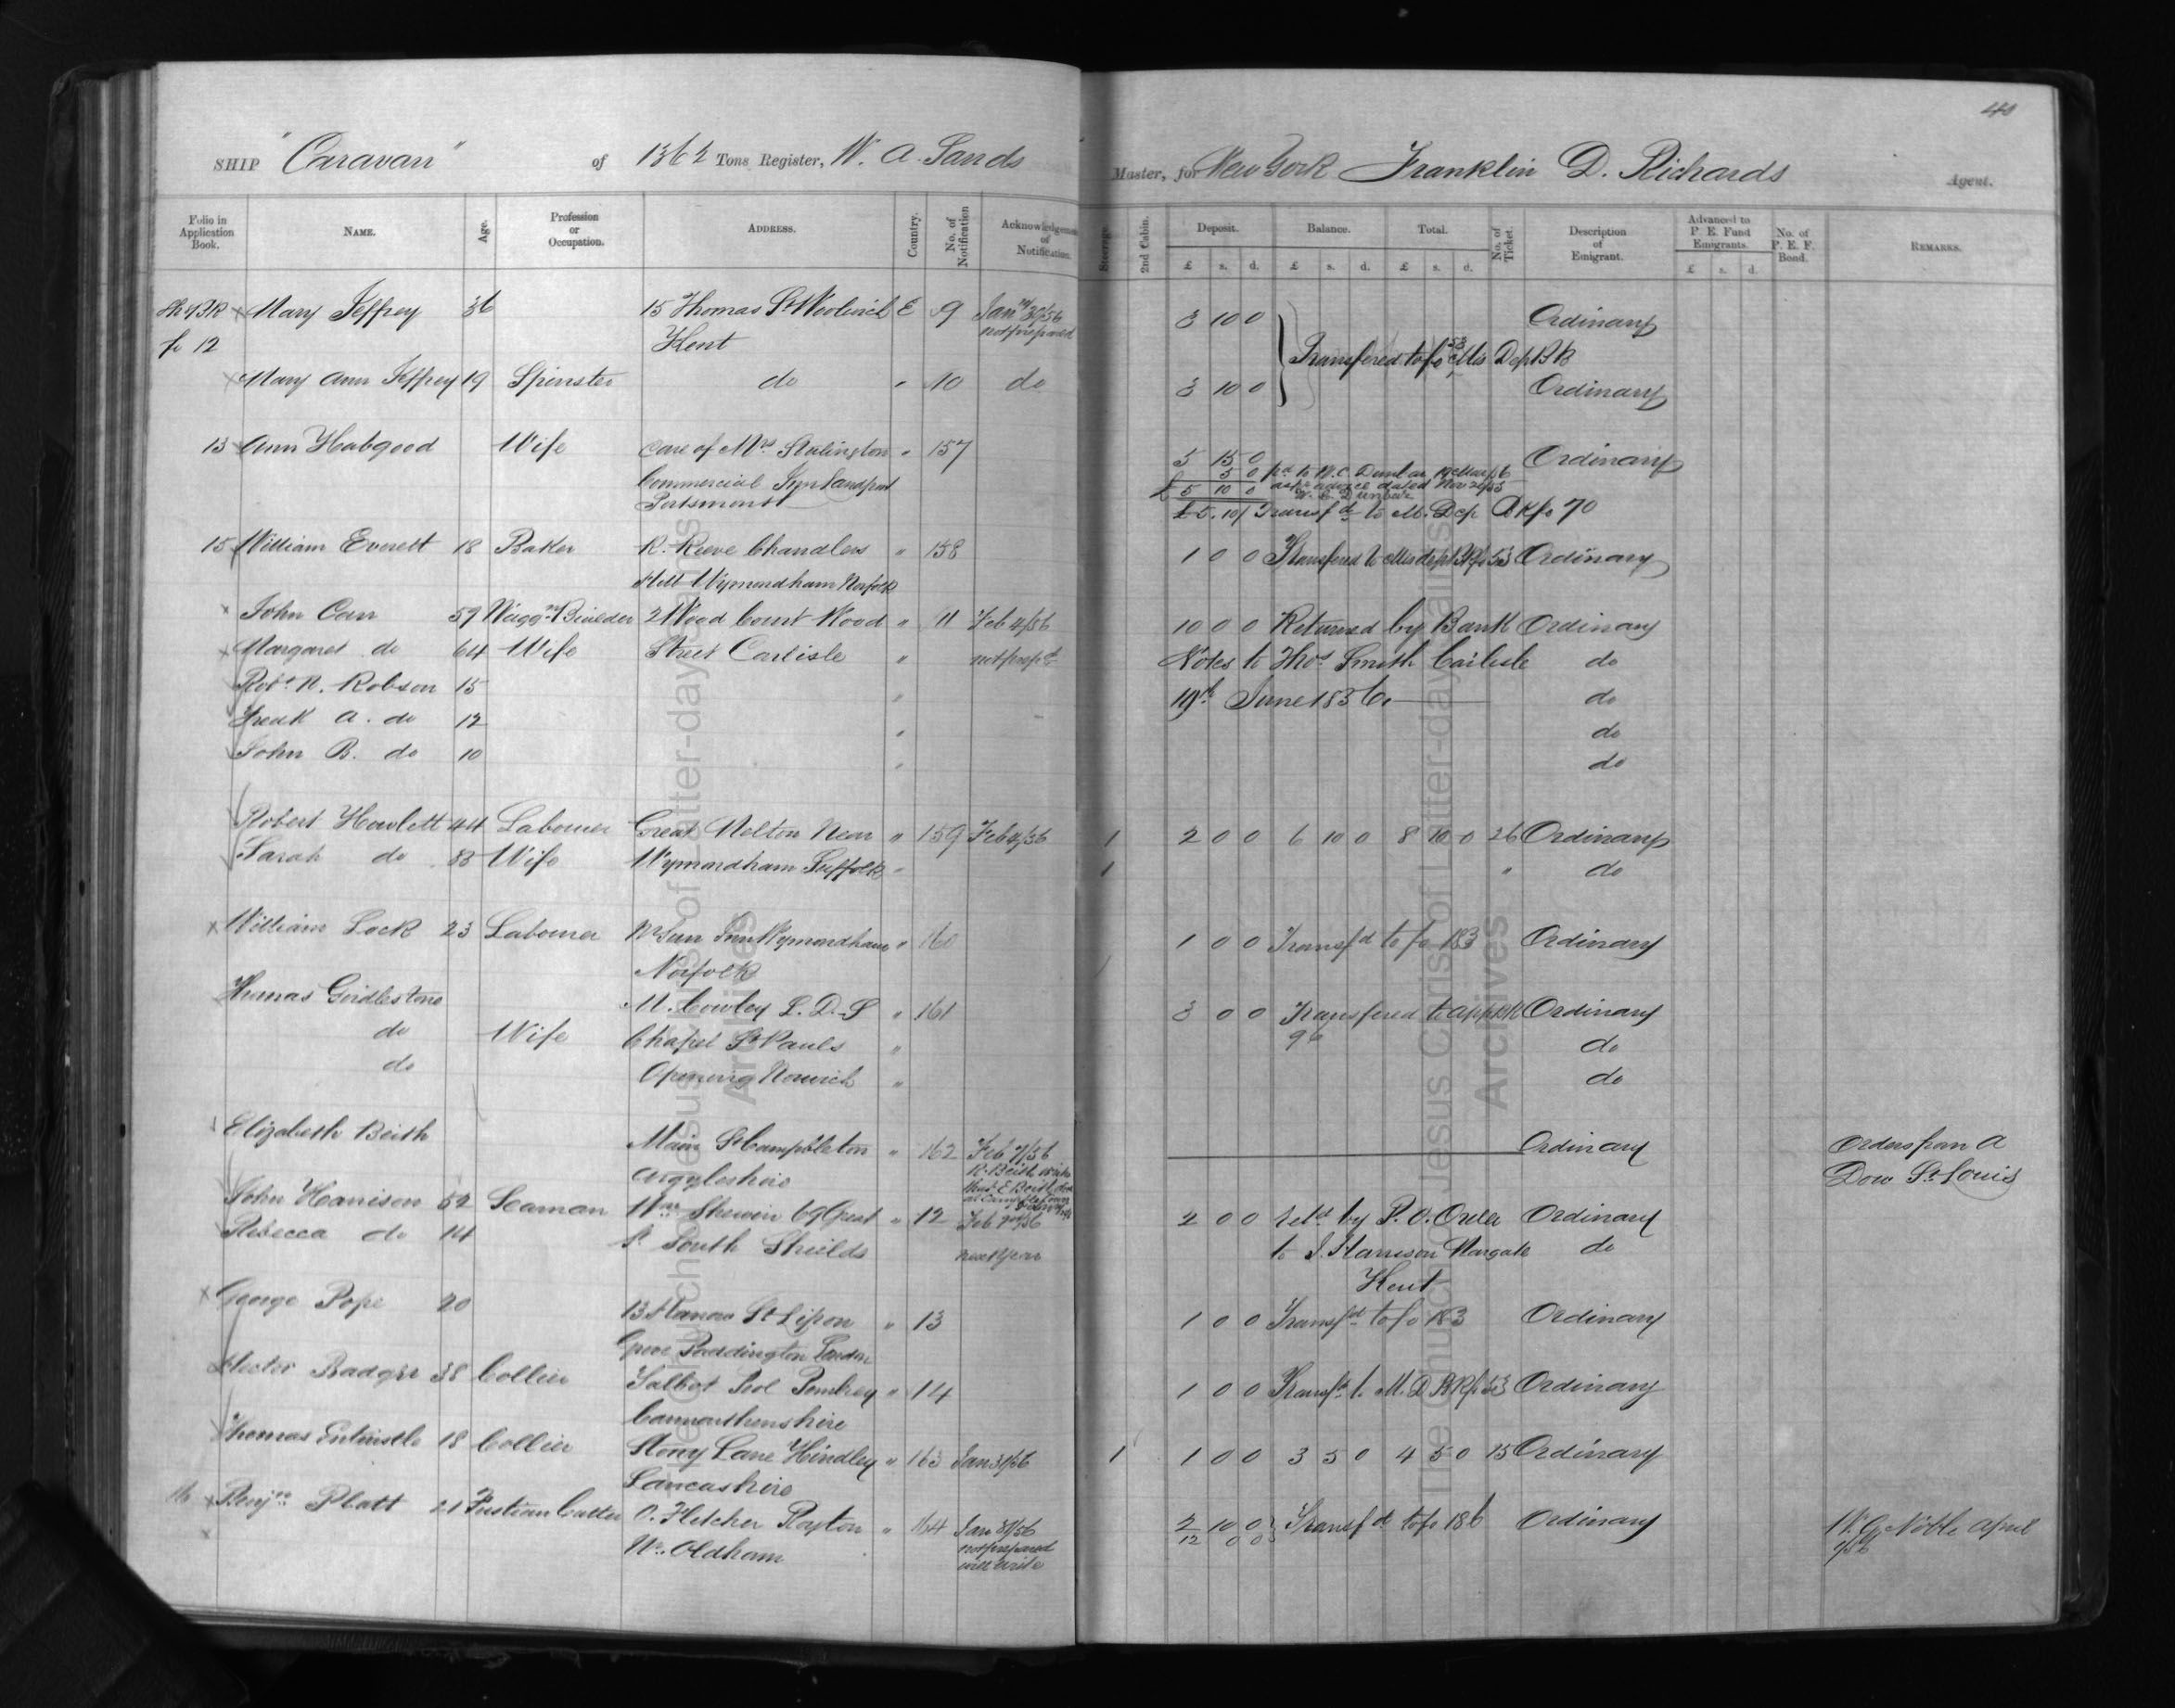 40
SHIP "Caravan" of 1362 Tons Register, W. A. Sands Master, for New York Franklin D. Richards Agent.
Folio in Application Book. NAME. Age. Profession or Occupation. ADDRESS. Country. No. of Notification Acknowledgement of Notification. Steerage 2nd Cabin. Deposit. Balance. Total. No. of Ticket. Description of Emigrant. Advanced to P. E. Fund Emigrants. No. of P. E. F. Bond. REMARKS.
£ s. d. £ s. d. £ s. d. £ s. d.
Mary Jeffrey 36 15 Thomas St Woolwich E 9 Jan 30/56 3 10 0 Ordinary
fo 12 Kent not prepared
Transfered to fo 53 Mis Dep Bk
Mary Ann Jeffrey 19 Spinster do " 10 do 3 10 0 Ordinary
13 Ann Habgood Wife Care of Mrs " 157 5 15 0 Ordinary
Commercial Landport 5 0 pd to W. C. Dunbar
Portsmouth £ 5 10 0 advice dated Nov
W. C. Dunbar
£5.10/ Transfd to M. Dep Bk fo 70
15 William Everett 18 Baker R. Reeve Chandlers " 158 1 0 0 Transfered to Mis dep Bk fo 53 Ordinary
Hill Wymondham Norfolk
John Carr 59 Waggn Builder 2 Wood Court Wood " 11 Feb 4/56 10 0 0 Returned by Bank Ordinary
Margaret do 64 Wife Street Carlisle " not prepd Notes to Thos Smith Carlisle do
Robt R. Robson 15 " 19th June 1856. do
Fredk A. do 12 " do
John B. do 10 " do
Robert Howlett 44 Labourer Great Melton Near " 159 Feb 4/56 1 2 0 0 6 10 0 8 10 0 26 Ordinary
Sarah do 38 Wife Wymondham Suffolk " 1 " do
William Lack 23 Labourer Nr Sun Inn Wymondham " 160 1 0 0 Transfd to fo 183 Ordinary
Norfolk
Thomas Girdlestone M. Cowley L. D. S " 161 3 0 0 Transfered to app Bk Ordinary
do Wife Chapel St Pauls " 96 do
do Opening Norwich " do
Elizabeth Beith Main St Campbleton " 162 Feb 7/56 Ordinary Orders from A
Argyleshire R. Beith Dow St Louis
John Harrison 52 Seaman Wm Sherwin 69 Great " 12 Feb 2nd/56 2 0 0 retd by P. O. Order Ordinary
Rebecca do 14 St South Shields next year to J. Harrison Margate do
Kent
George Pope 20 13 St Lisson " 13 1 0 0 Transfd to fo 183 Ordinary
Grove Paddington London
Hector Badger 38 Collier Talbot Pembrey " 14 1 0 0 Transfd to M. D Bk fo 53 Ordinary
Carmarthenshire
Thomas Entwistle 18 Collier Stony Lane Hindley " 163 Jan 31/56 1 1 0 0 3 5 0 4 5 0 15 Ordinary
Lancashire
16 Benjn Platt 21 Fustian Cutter O. Fletcher Royton " 164 Jan 31/56 2 10 0 Transfd to fo 186 Ordinary W. G. Noble April
Nr. Oldham not prepared 12 0 0 7/56
will write
The Church of Jesus Christ of Latter-day Saints
Archives
The Church of Jesus Christ of Latter-day Saints
Archives